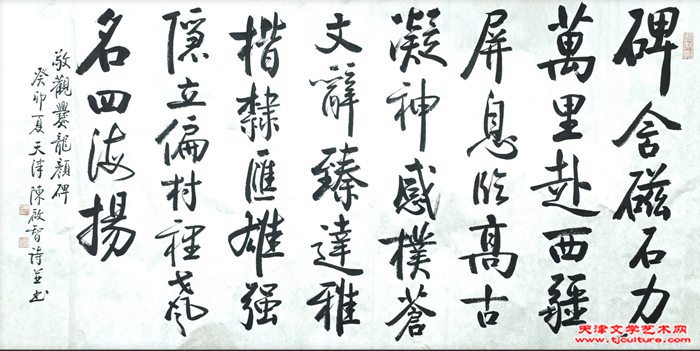 碑含磁石力
萬里赴西疆
屏息临高古
凝神感樸蒼
文辭臻達雅
楷隸匯雄强
隱立偏村裡
名四海揚
敬觀爨龍顔碑
癸卯夏天津陳啟智詩並书
天津文学艺术网
www.tjculture.com